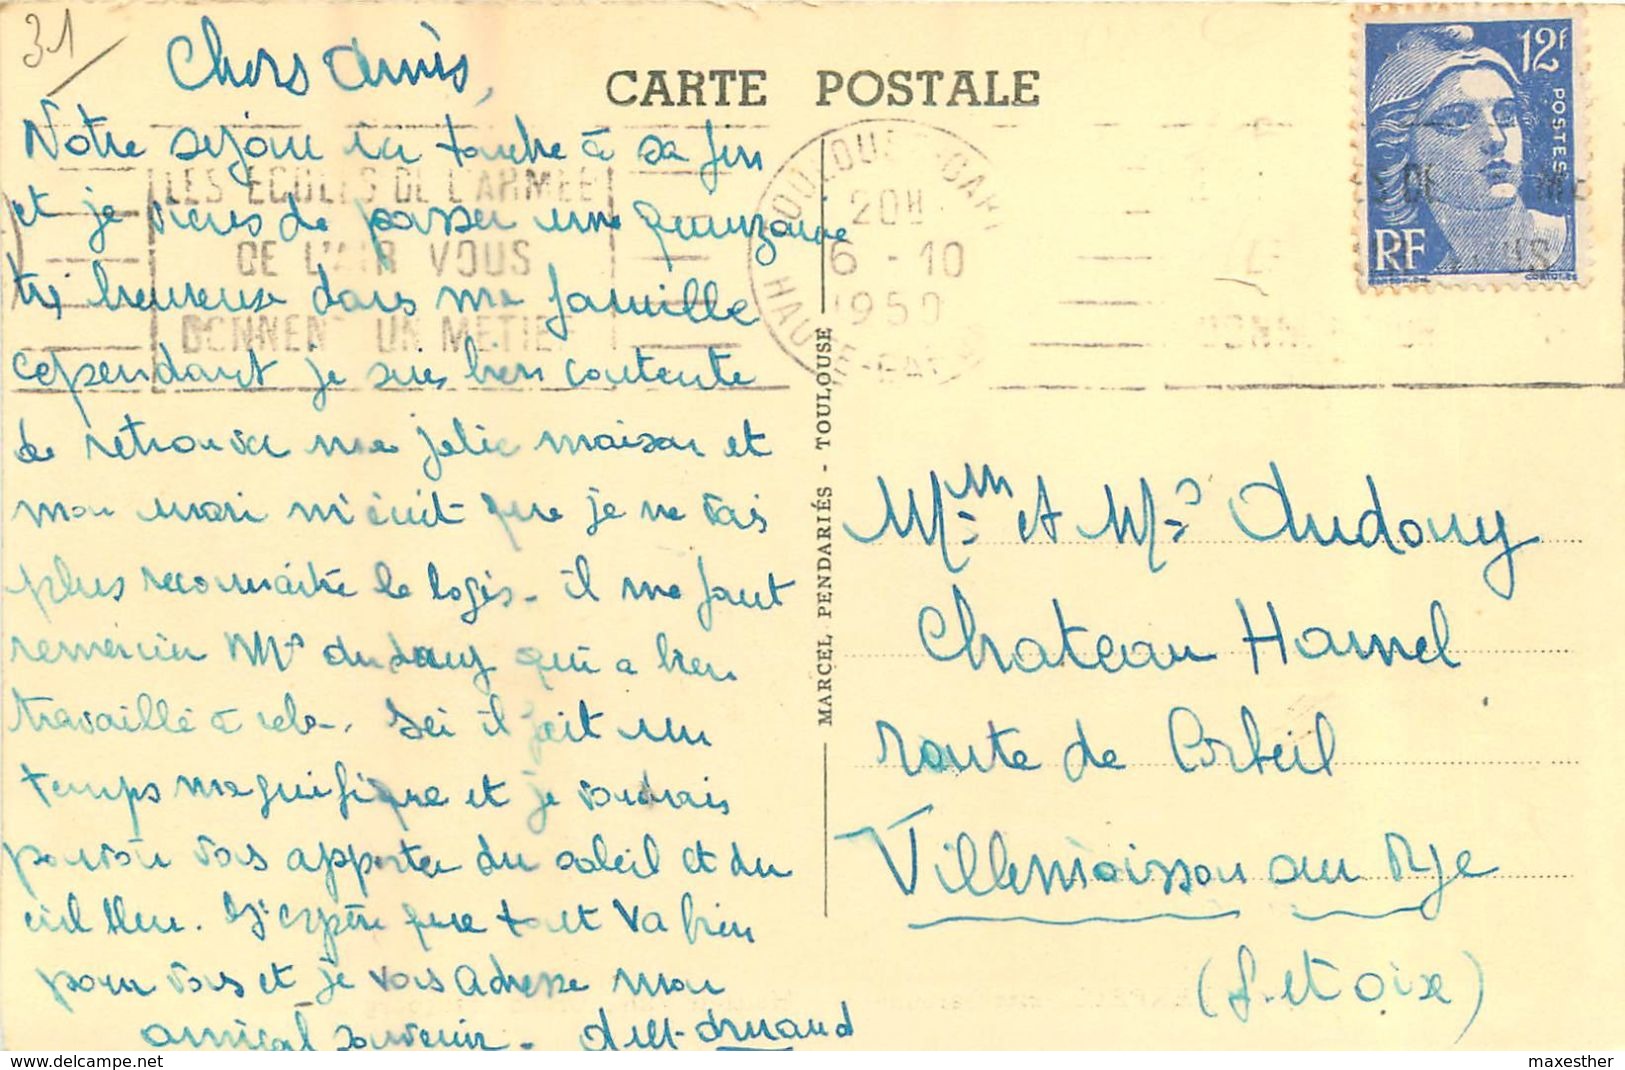 31
Chers Amis,
CARTE POSTALE
12F
POSTES
RF
Notre séjour ici touche à sa fin
et je viens de passer une quinzaine
très heureuse dans ma famille
cependant je suis bien contente
de retrouver ma jolie maison et
mon mari m'écrit que je ne vais
plus reconnaitre le logis - il me faut
remercier Mr Audouy qui a bien
travaillé à cela. Ici il fait un
temps magnifique et je voudrais
pouvoir vous apporter du soleil et du
ciel bleu. J'espère que tout va bien
pour vous et je vous adresse mon
amical souvenir -
LES ECOLES DE L'ARMEE
DE L'AIR VOUS
DONNENT UN METIER
TOULOUSE-GARE
20H
6 - 10
1950
HAUTE-GARONNE
MARCEL PENDARIÉS - TOULOUSE
Mme et Mr Audouy
Chateau Hamel
route de Corbeil
Villemoisson au Rye
(S. et Oise)
maxesther